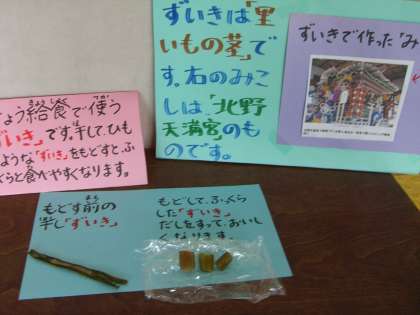 ずいきは「里
いもの茎」で
す。右のみこ
しは「北野
天満宮」のも
のです。
ずいきで作った「み
きょう給食で使う
ずいき」です。干して、ひも
のような「ずいき」をもどすと、ふ
っくらと食べやすくなります。
もどす前の
干し「ずいき」
もどして、ふっくら
した「ずいき」
だしをすって、おいし
くなります。